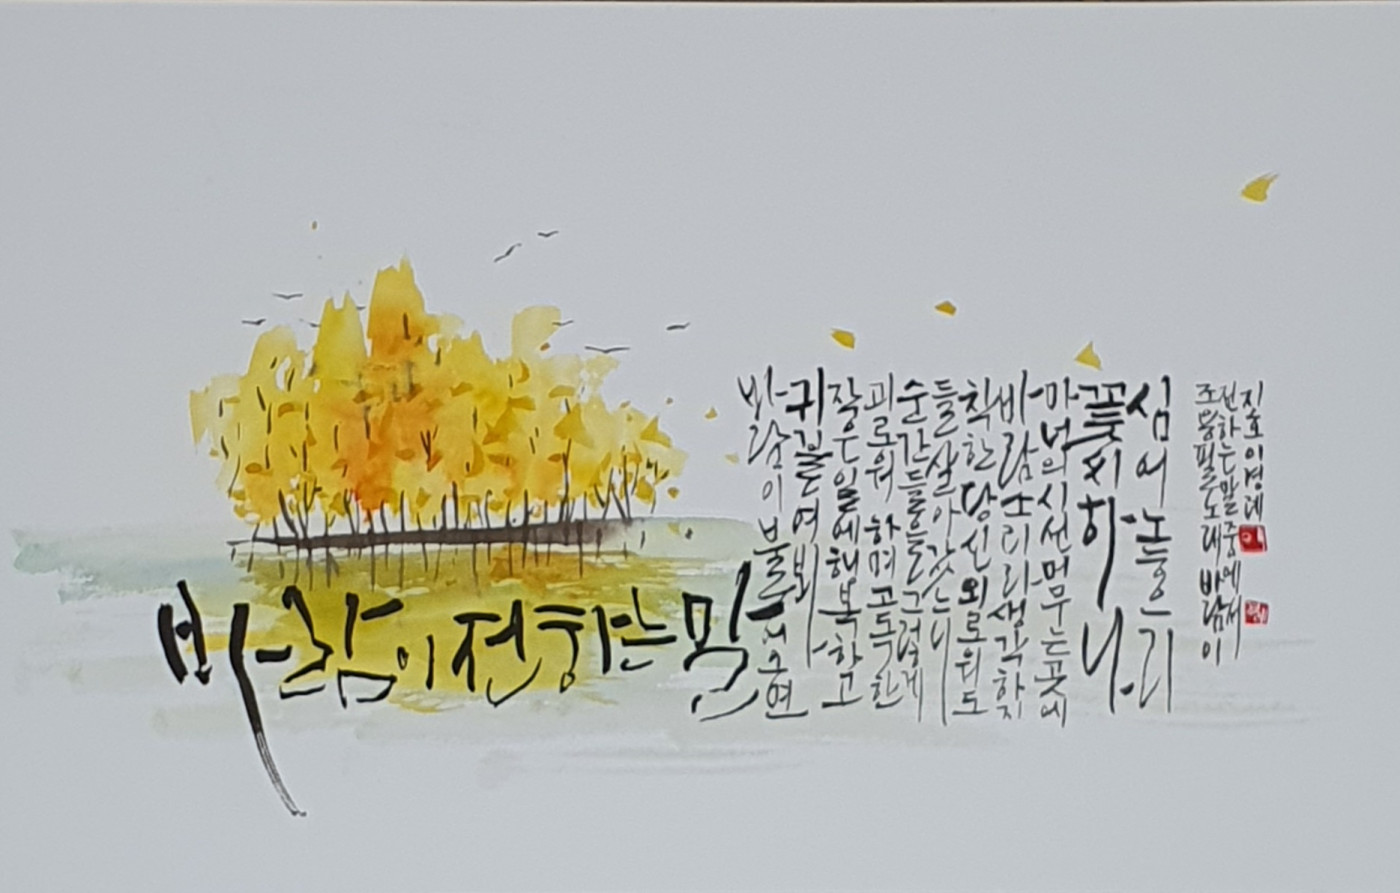 바람이 전하는 말
바람이 불어오면
귀 기울여 봐
작은 일에 행복하고
괴로워하며 고독한
순간들을 그렇게
들 살아갔느니
착한 당신 외로워도
바람소리라 생각하지
마 너의 시선 머무는 곳에
꽃씨 하나
심어 놓으리
조용필 노래 바람이
전하는 말 중에서
지호 이경례